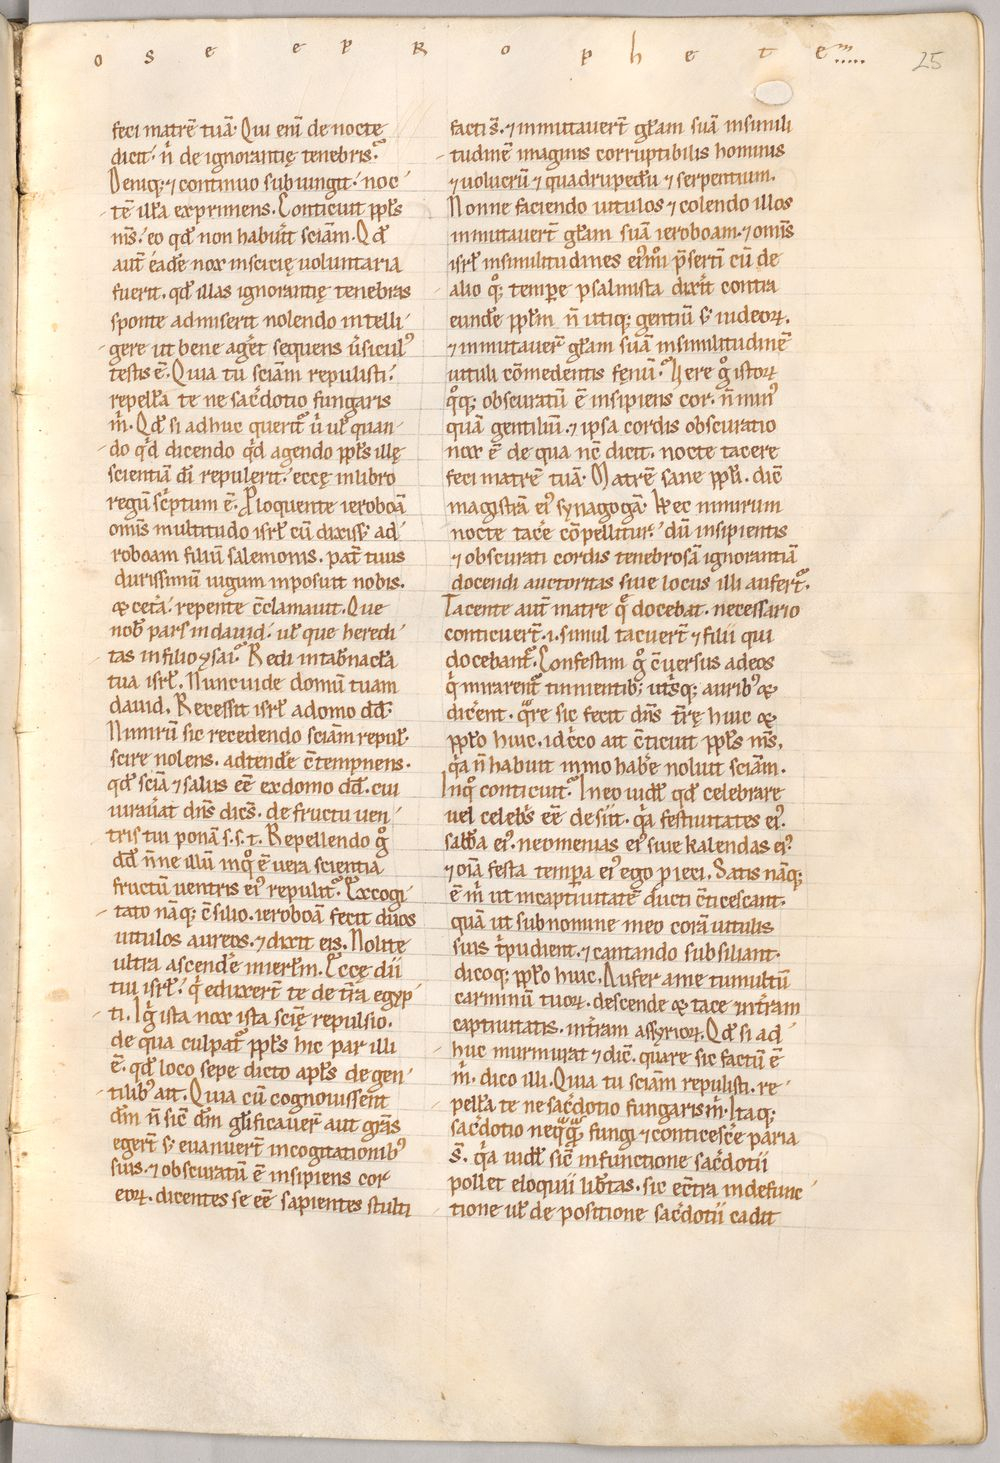 o s e e p R o p h e t e
25
feci matrē tuā. Qui eni̅ de nocte
dicit. n̅ de ignorantię tenebris?
Deniq; ⁊ continuo subiungit. noc-
tē illa̅ exprimens. Conticuit ppl̅s
m̅s. eo qd̅ non habuit sciam̅. Qd̅
aut̅ eade̅ nox inscicię uoluntaria
fuerit. qd̅ illas ignorantię tenebras
sponte admiserit nolendo intelli-
gere ut bene ageret sequens u̅sicul᾽
testis ē. Quia tu sciam̅ repulisti.
repella̅ te ne sac̅dotio fungaris
m̅. Qd̅ si adhuc querit᷑ u̅ ul̅ quan-
do qd̅ dicendo qd̅ agendo ppl̅s illę
scientia̅ di̅ repulerit. ecce in libro
regu̅ sc̅ptum ē. Eloquente ieroboa̅
omīs multitudo isrl̅ cu̅ dixiss& ad
roboam filiu̅ salemonis. pat̅ tuus
durissimu̅ iugum inposuit nobis.
& cet̅a. repente c̅clamauit. Que
nob̅ pars in dauid. ul̅ que heredi-
tas in filio ysai? Redi in tab̅nac̅la
tua isrl̅. Nunc uide domu̅ tuam
dauid. Recessit isrl̅ a domo dd̅.
Nimiru̅ sic recedendo sciam̅ repul̅.
scire nolens. adtende̅ c̅tempnens.
qd̅ scia̅ ⁊ salus ee̅ ex domo dd̅. cui
iurauat dn̅s dic̅s. de fructu uen-
tris tui pona̅ s. s. t. Repellendo g̊
dd̅ n̅ne illu̅ in q̊ ē uera scientia
fructu̅ uentris ei᾽ repulit? Excogi-
tato na̅q; c̅silio. ieroboa̅ fecit duos
uitulos aureos. ⁊ dixit eis. Nolite
ultra ascende̅ in ierl̅m. Ecce dii
tui isrl̅. q̇ eduxert̅ te de tra̅ egyp-
ti. Igit̅ ista nox ista scię̅ repulsio.
de qua culpat᷑ ppl̅s hic par illi
ē. qd̅ loco sepe dicto apl̅s de gen-
tilib᾽ ait. Quia cu̅ cognouissent
dm̅ n̅ sic̅ dm̅ gl̅ificauer̅ aut gra̅s
egert̅ s& euanuert̅ in cogitationib᾽
suis. ⁊ obscuratu̅ ē insipiens cor
eoꝝ. dicentes se ee̅ sapientes stulti
facti s̅. ⁊ inmutauert̅ gl̅am sua̅ in simili-
tudine̅ imaginis corruptibilis hominis
⁊ uolucru̅ ⁊ quadrupedu̅ ⁊ serpentium.
Nonne faciendo uitulos ⁊ colendo illos
inmutauert̅ gl̅am sua̅ ieroboam. ⁊ omīs
isrl̅ in similitudines ei᾽modi p̅serti̅ cu̅ de
alio q̊q; tempe̅ psalmista dixit contra
eunde̅ ppl̅m n̅ utiq; gentiu̅ s& iudeoꝝ.
⁊ inmutauer̅ gl̅am sua̅ in similitudine̅
uituli co̅medentis fenu̅? Vere g̊ istoꝝ
q̊q; obscuratu̅ ē insipiens cor. n̅ min᾽
qua̅ gentiliu̅. ⁊ ipsa cordis obscuratio
nox ē de qua nc̅ dicit. nocte tacere
feci matre̅ tua̅. Matre̅ sane ppl̅i. dic̅
magistra̅ ei᾽ synagoga̅. Hec nimirum
nocte tace̅ co̅pellitur. du̅ insipientis
⁊ obscurati cordis tenebrosa̅ ignorantia̅
docendi auctoritas siue locus illi aufert᷑.
Tacente aut̅ matre q̅ docebat. necessario
conticuert̅ .i. simul tacuert̅ ⁊ filii qui
docebant᷑. Confestim g̊ c̅uersus ad eos
q̇ mirarent᷑ tinnientib; utrisq; aurib᾽ &
dice̅nt. qre̅ sic fecit dn̅s tr̅ę huic &
ppl̅o huic. idc̅co ait c̅ticuit ppl̅s m̅s.
q̅a n̅ habuit immo habe̅ noluit sciam̅.
In q̊ conticuit? In eo uidl̅ qd̅ celebrare
uel celebs̅ ee̅ desiit. q̅a festiuitates ei᾽.
sabb̅a ei᾽. neomenias ei᾽ siue kalendas ei᾽
⁊ oi̅a festa temp̅a ei᾽ ego pieci. Satis na̅q;
ē m̅ ut in captiuitate̅ ducti c̅ticescant.
qua̅ ut sub nomine meo cora̅ uitulis
suis t̅pudient. ⁊ cantando subsiliant.
dicoq; ppl̅o huic. Aufer a me tumultu̅
carminu̅ tuoꝝ. descende & tace intra̅m
captiuitatis. intra̅m assyrioꝝ. Qd̅ si ad-
huc murmurat ⁊ dic̅. quare sic factu̅ ē
m̅. dico illi. Quia tu sciam̅ repulisti. re-
pella̅ te ne sac̅dotio fungaris m̅. Itaq;
sac̅dotio neq̅q̅; fungi ⁊ conticesce̅ paria
s̅. q̅a uidl̅ sic̅ in functione sac̅dotii
pollet eloquii lib̅tas. sic ec̅tra in defunc-
tione ul̅ de positione sac̅dotii cadit